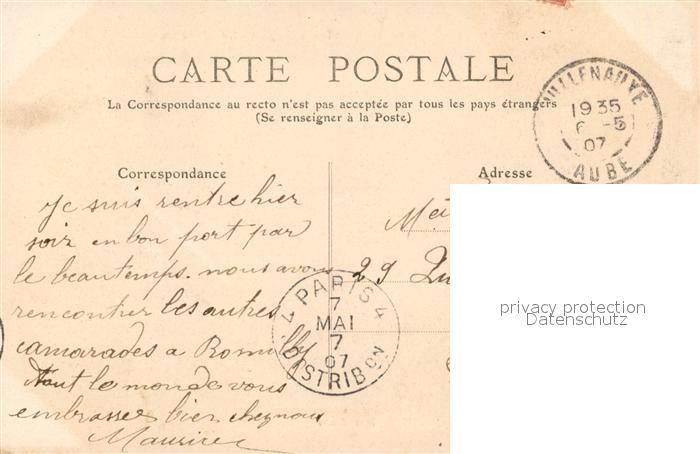 CARTE POSTALE
La Correspondance au recto n'est pas acceptée par tous les pays étrangers
(Se renseigner à la Poste)
VILLENAUXE
1935
6 -5
07
AUBE
Correspondance
Adresse
Je suis rentre hier
soir en bon port par
le beau temps. nous avons
rencontrer les autres
camarades a Romilly
tout le monde vous
embrasser bien chez nous
Maurice
29
PARIS 4
7
MAI
7
07
DISTRIBON
privacy protection
Datenschutz